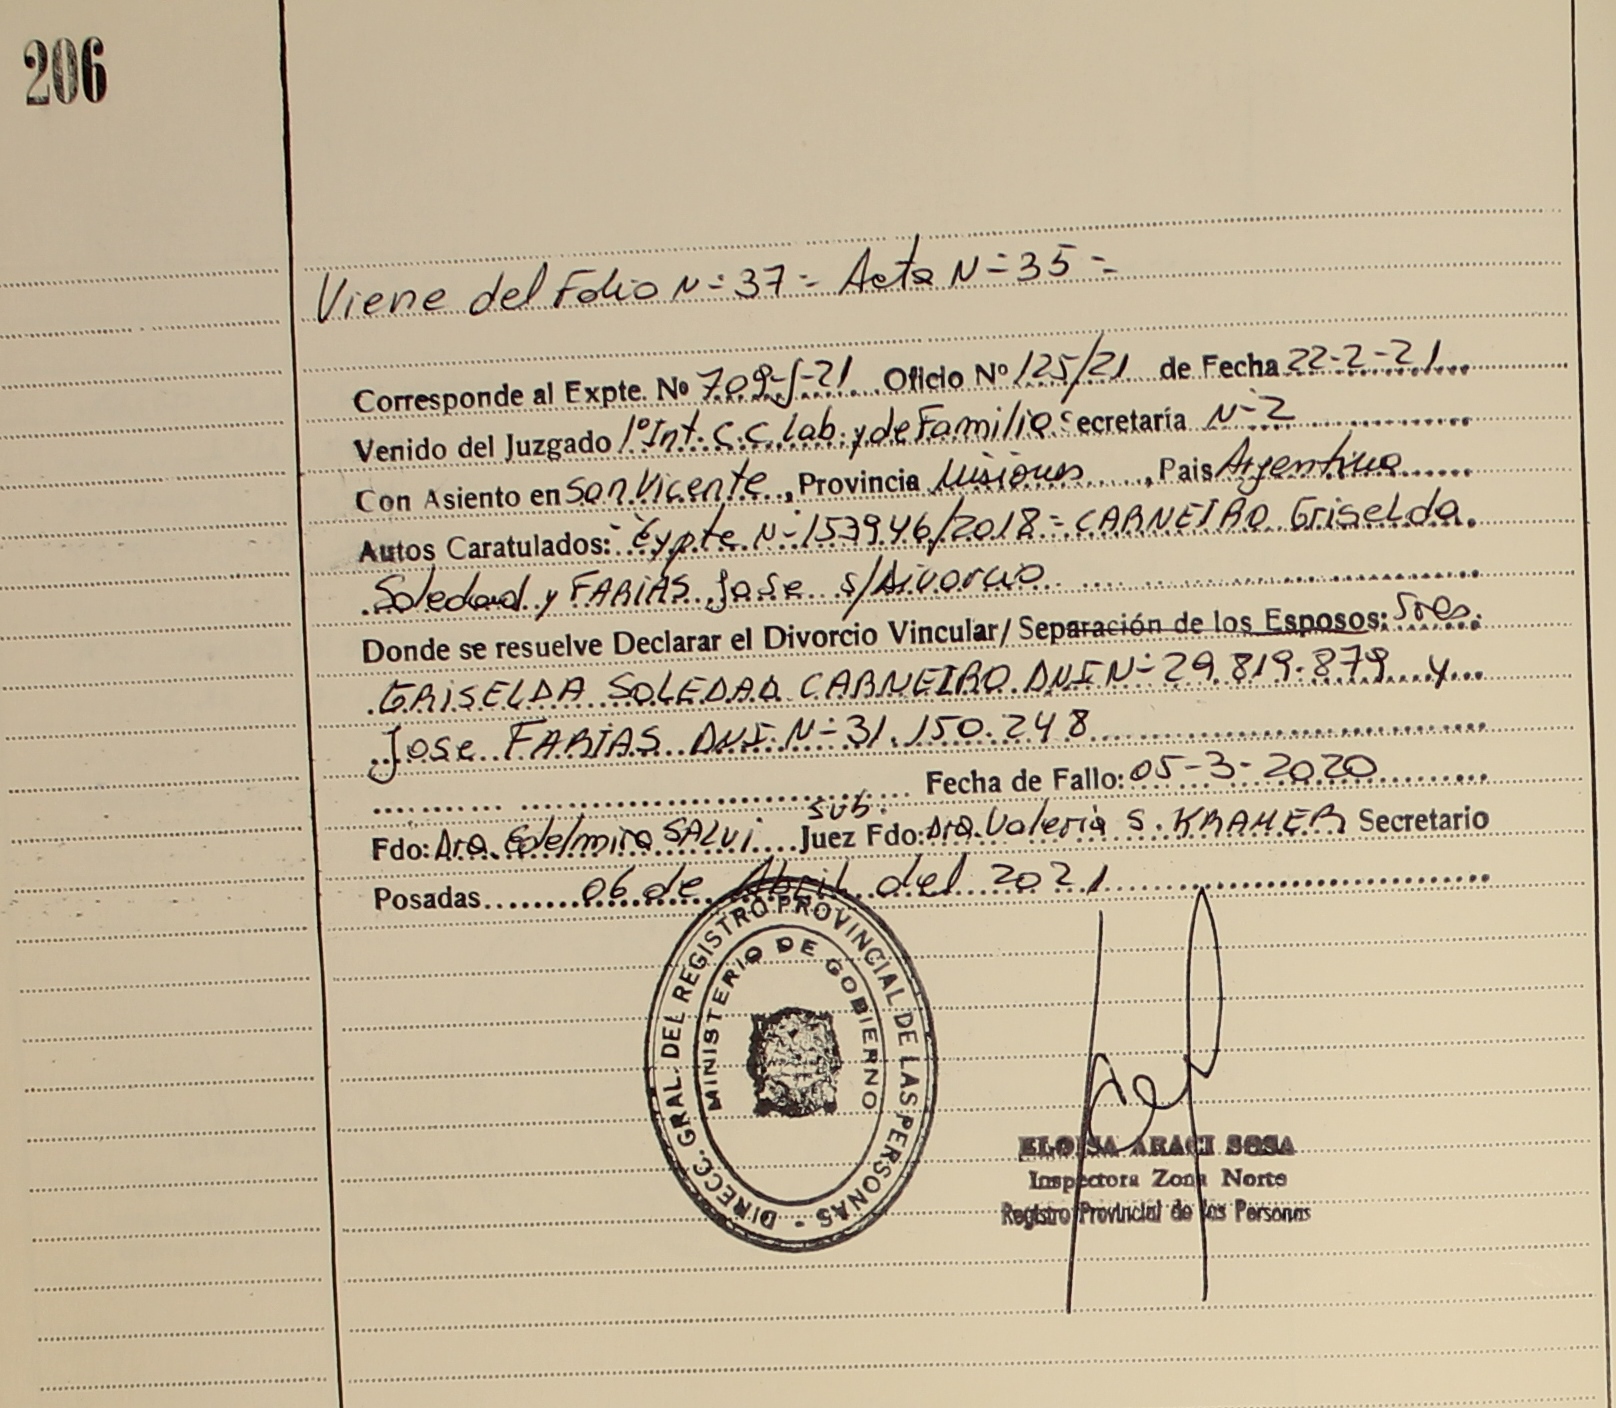 206
Viene del Folio N- 37 - Acta N- 35 -
Corresponde al Expte. Nº 709-J-21 Oficio Nº 125/21 de Fecha 22-2-21
Venido del Juzgado 1º Int. C.C. Lab. y de Familia Secretaría N-2
Con Asiento en San Vicente, Provincia Misiones, Pais Argentina
Autos Caratulados: Expte N- 153946/2018 - CARNEIRO Griselda
Soledad y FARIAS Jose s/Divorcio
Donde se resuelve Declarar el Divorcio Vincular/ Separación de los Esposos: Sres.
GRISELDA SOLEDAD CARNEIRO DNI N- 29.819.879 y
Jose FARIAS DNI N- 31.150.248
Fecha de Fallo: 05-3-2020
Fdo: Dra. Edelmira SALVI Juez sub. Fdo: Dra. Valeria S. KRAMER Secretario
Posadas 06 de Abril del 2021
DIRECC. GRAL. DEL REGISTRO PROVINCIAL DE LAS PERSONAS -
MINISTERIO DE GOBIERNO
ELOISA ARACI SOSA
Inspectora Zona Norte
Registro Provincial de las Personas